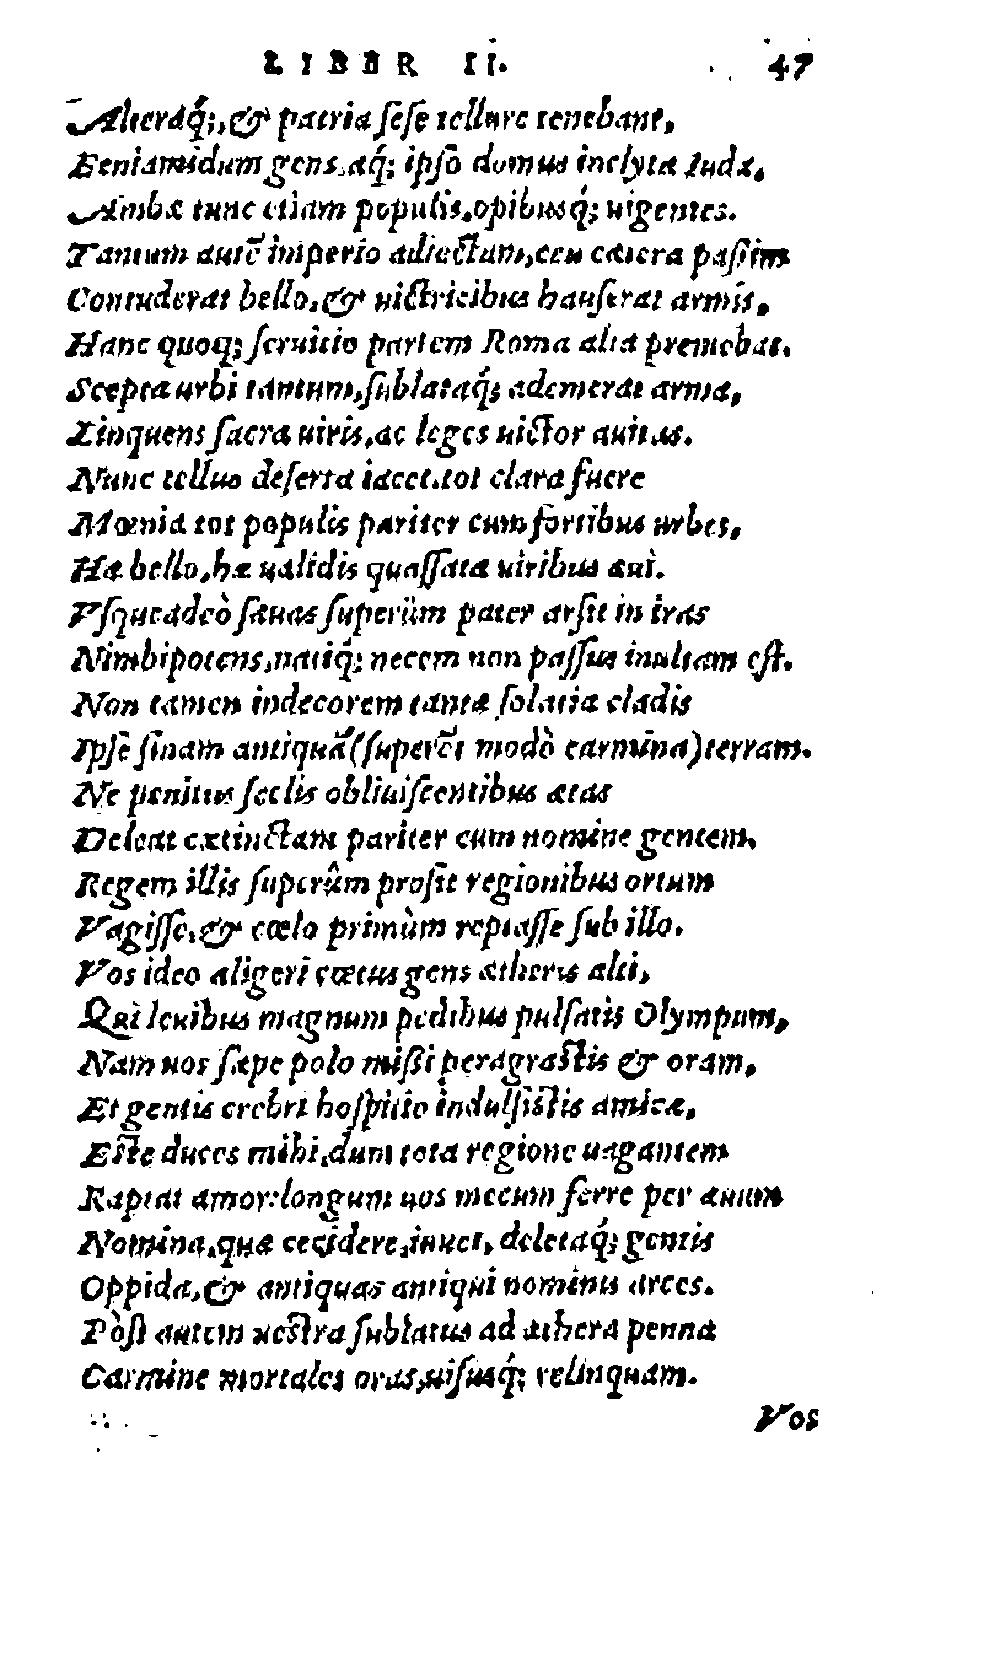 LIBER II. 47
Alteraq́;, & patria sese tellure tenebant,
Beniamidum gens, aq́; ipso domus inclyta Iudæ,
Ambæ tunc etiam populis, opibusq́; uigentes.
Tantum autē imperio adiectam, ceu cætera passim
Contuderat bello, & uictricibus hauserat armis,
Hanc quoq; seruitio partem Roma alta premebat.
Sceptra urbi tantum, sublataq́; ademerat arma,
Linquens sacra uiris, ac leges uictor auitas.
Nunc tellus deserta iacet. tot clara fuere
Mœnia tot populis pariter cum fortibus urbes,
Hæ bello, hæ ualidis quassatæ uiribus æui.
Vsqueadeò sæuas superûm pater arsit in iras
Nimbipotens, natiq́; necem non passus inultam est.
Non tamen indecorem tantæ solatia cladis
Ipse sinam antiquā (superēt modò carmina) terram.
Ne penitus seclis obliuiscentibus ætas
Deleat extinctam pariter cum nomine gentem,
Regem illis superûm prosit regionibus ortum
Vagisse, & cœlo primùm reptasse sub illo.
Vos ideo aligeri cœtus gens ætheris alti,
Qui leuibus magnum pedibus pulsatis Olympum,
Nam uos sæpe polo missi peragrastis & oram,
Et gentis crebri hospitio indulsistis amicæ,
Este duces mihi, dum tota regione uagantem
Raptat amor: longum uos mecum ferre per æuum
Nomina, quæ cecidere, iuuet, deletaq́; gentis
Oppida, & antiquas antiqui nominis arces.
Pòst autem uestra sublatus ad æthera penna
Carmine mortales oras, uisusq́; relinquam.
Vos